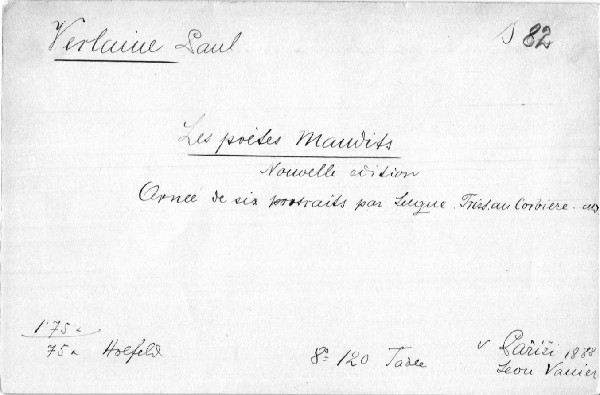 Verlaine Paul
D 82
Les poètes Maudits
Nouvelle edition
Ornée de six portraits par Luque. Tristan Corbiere
1'75
75 Holfeld
8° 120
v Paříži 1888
Leon Vanier